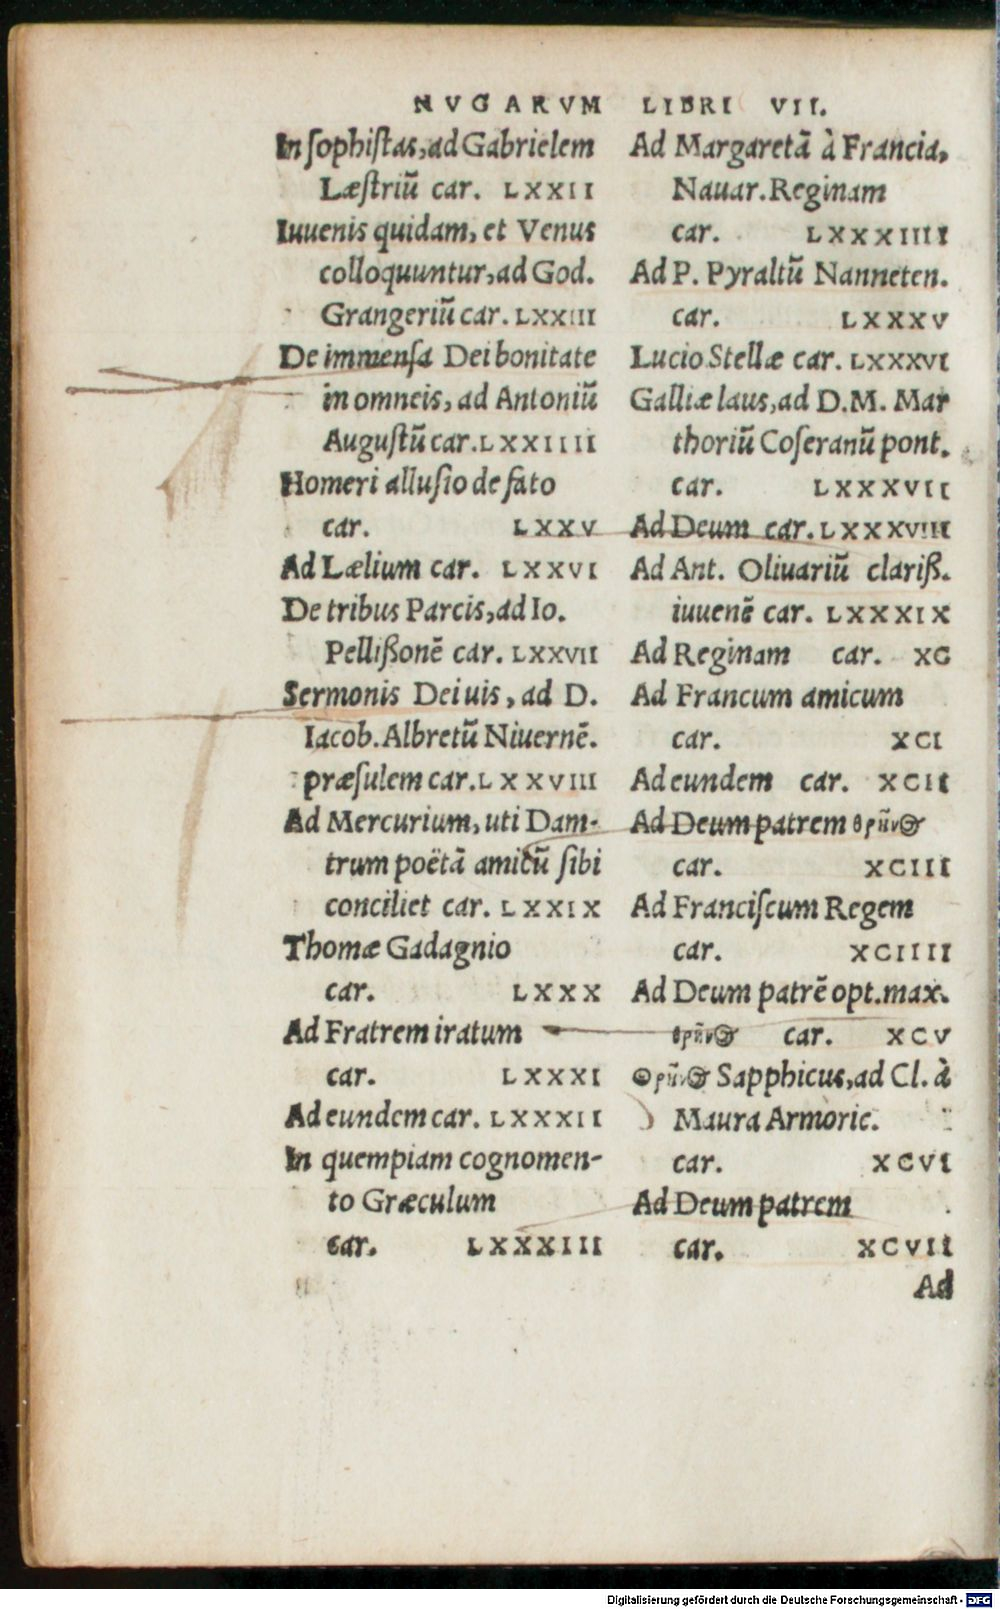 NVGARVM LIBRI VII.
In ſophiſtas, ad Gabrielem
Læſtriũ car. LXXII
Iuuenis quidam, et Venus
colloquuntur, ad God.
Grangeriũ car. LXXIII
De immenſa Dei bonitate
in omneis, ad Antoniũ
Auguſtũ car. LXXIIII
Homeri alluſio de fato
car. LXXV
Ad Lælium car. LXXVI
De tribus Parcis, ad Io.
Pellißonẽ car. LXXVII
Sermonis Dei uis, ad D.
Iacob. Albretũ Niuernẽ.
præſulem car. LXXVIII
Ad Mercurium, uti Dam-
trum poëtã amicũ ſibi
conciliet car. LXXIX
Thomæ Gadagnio
car. LXXX
Ad Fratrem iratum
car. LXXXI
Ad eundem car. LXXXII
In quempiam cognomen-
to Græculum
car. LXXXIII
Ad Margaretã à Francia,
Nauar. Reginam
car. LXXXIIII
Ad P. Pyraltũ Nanneten.
car. LXXXV
Lucio Stellæ car. LXXXVI
Galliæ laus, ad D. M. Mar
thoriũ Coſeranũ pont.
car. LXXXVII
Ad Deum car. LXXXVIII
Ad Ant. Oliuariũ clariß.
iuuenẽ car. LXXXIX
Ad Reginam car. XC
Ad Francum amicum
car. XCI
Ad eundem car. XCII
Ad Deum patrem θρῆνος
car. XCIII
Ad Franciſcum Regem
car. XCIIII
Ad Deum patrẽ opt. max.
θρῆνος car. XCV
Θρῆνος Sapphicus, ad Cl. à
Maura Armoric.
car. XCVI
Ad Deum patrem
car. XCVII
Ad
Digitalisierung gefördert durch die Deutsche Forschungsgemeinschaft - DFG